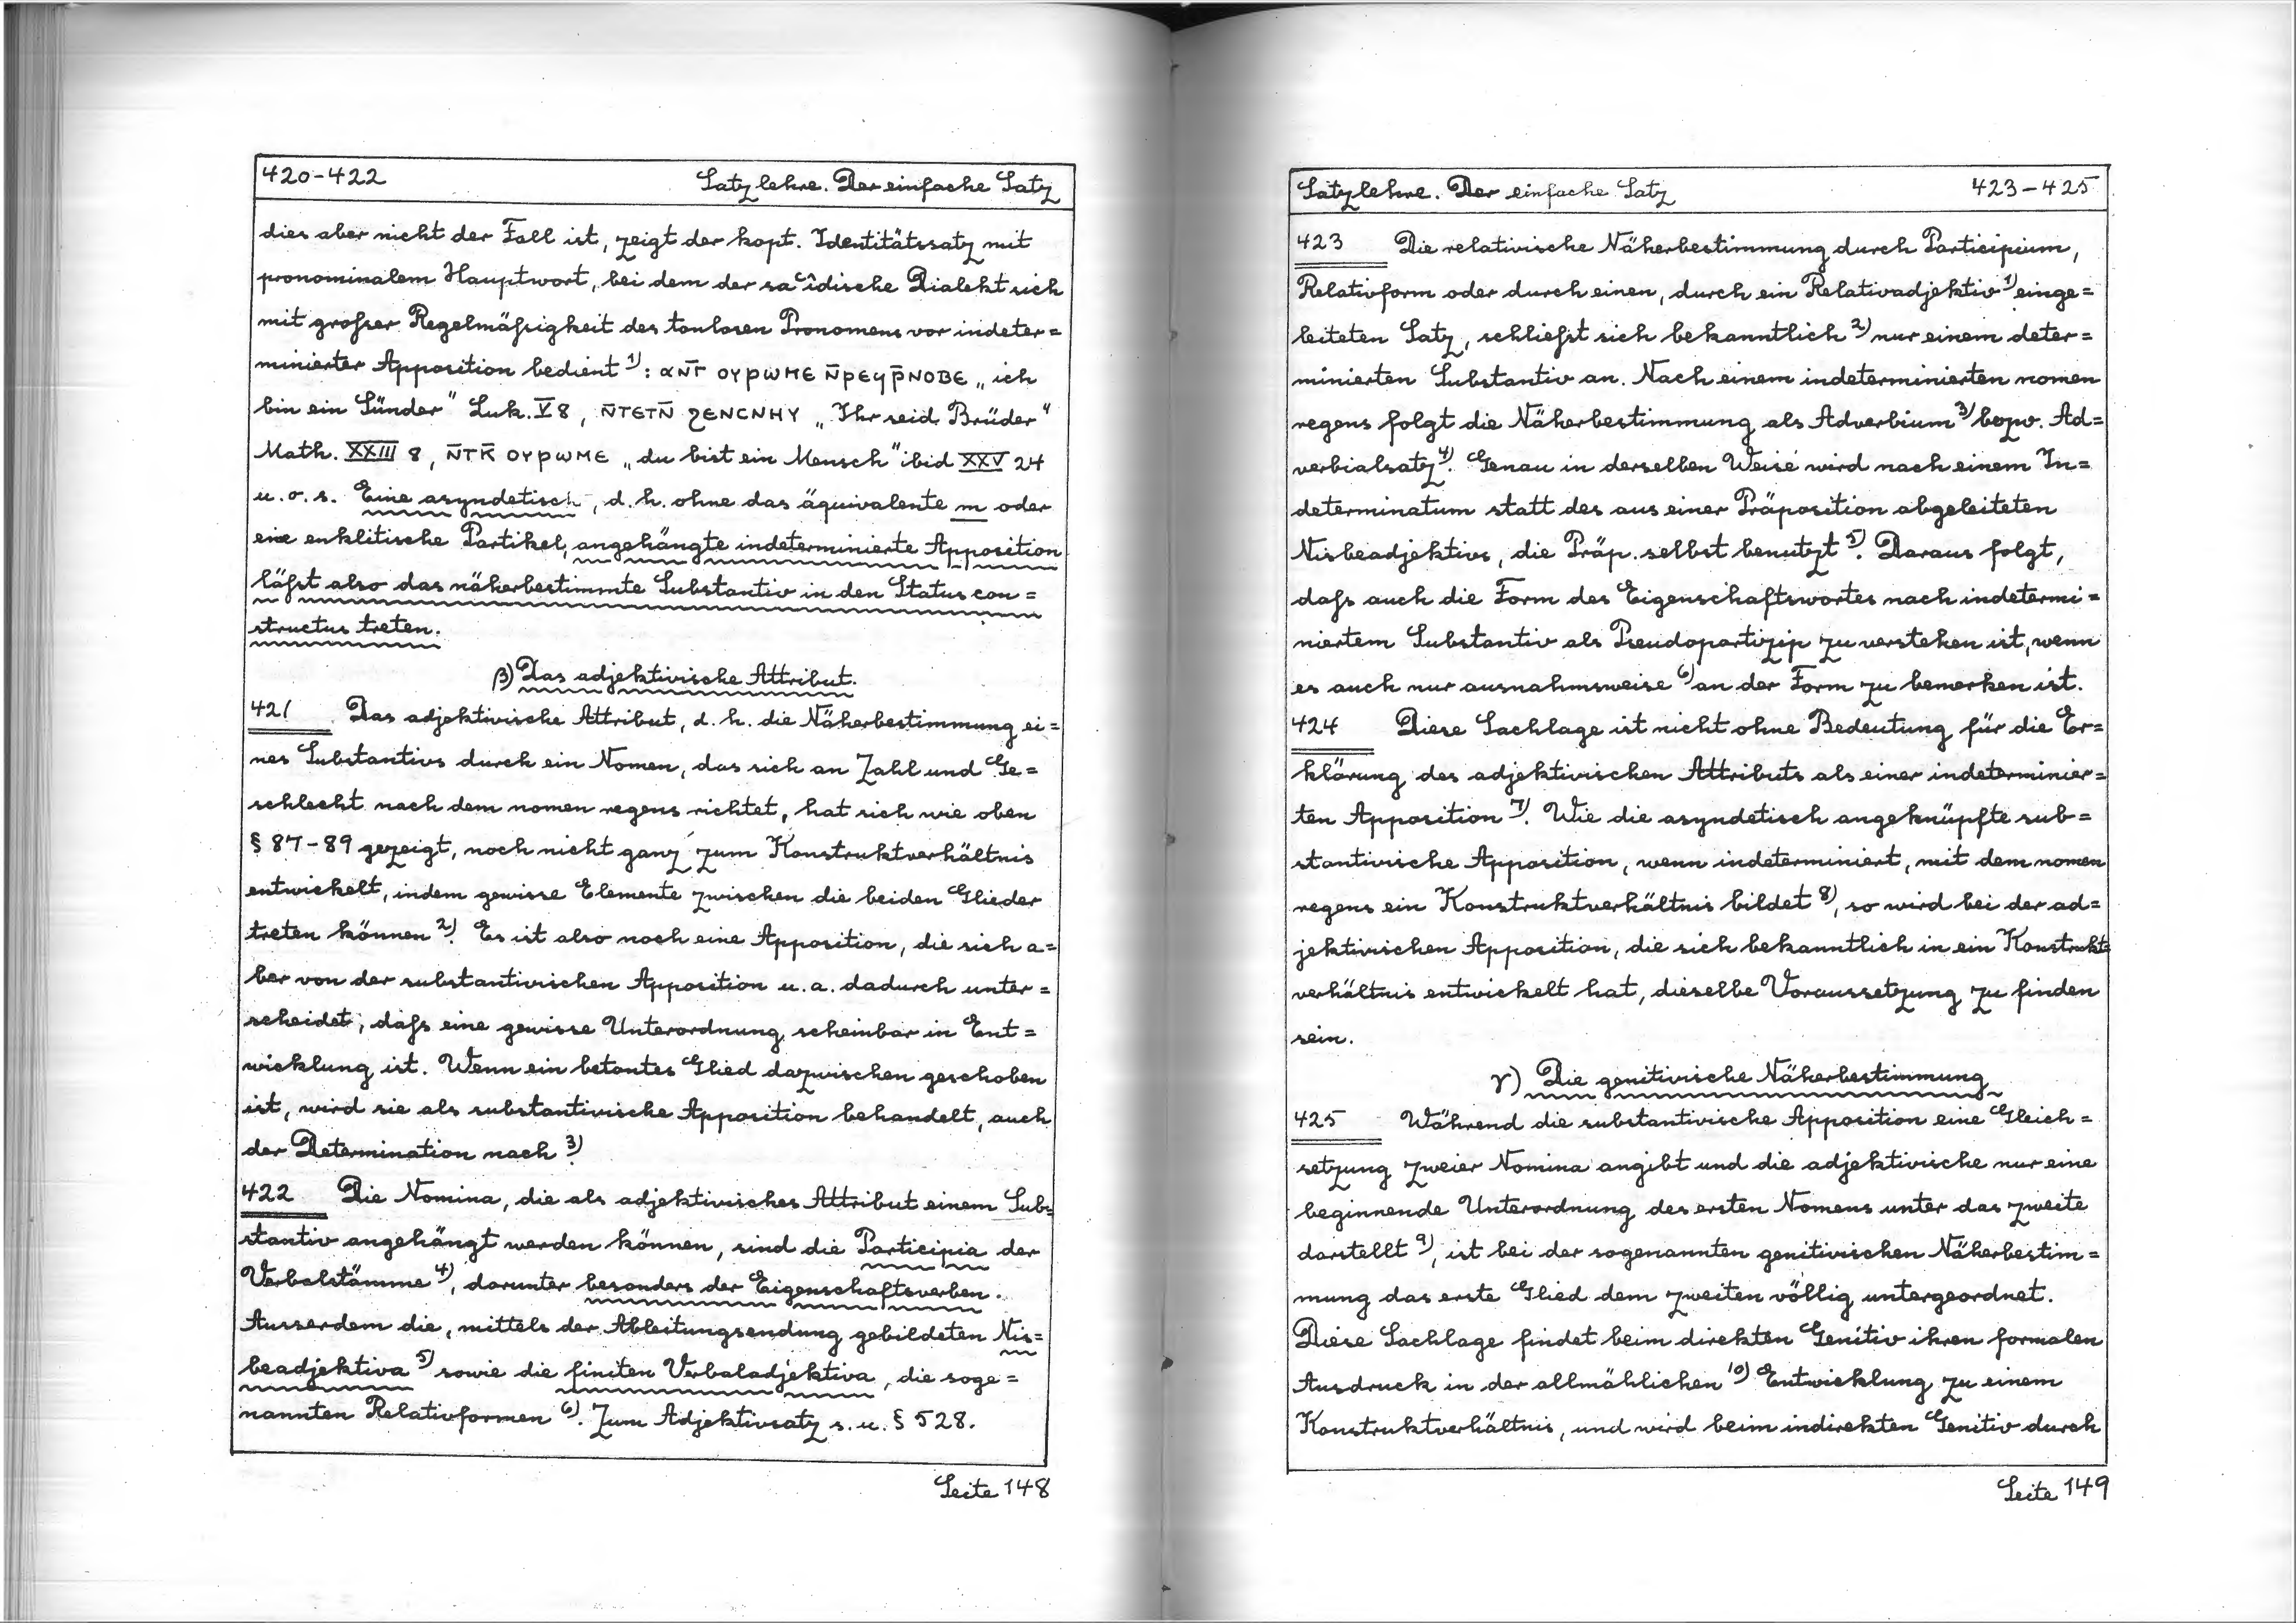 420-422 Satzlehre. Der einfache Satz
dies aber nicht der Fall ist, zeigt der kopt. Identitätssatz mit
pronominalem Hauptwort, bei dem der saʿîdische Dialekt sich
mit grosser Regelmäßigkeit des tonlosen Pronomens vor indeter=
minierter Apposition bedient 1): ⲁⲛⲅ̄ ⲟⲩⲣⲱⲙⲉ ⲛ̄ⲣⲉϥⲣ̄ⲛⲟⲃⲉ „ich
bin ein Sünder" Luk. V 8, ⲛ̄ⲧⲉⲧⲛ̄ ϩⲉⲛⲥⲛⲏⲩ „Ihr seid Brüder"
Math. XXIII 8, ⲛ̄ⲧⲕ̄ ⲟⲩⲣⲱⲙⲉ „du bist ein Mensch" ibid XXV 24
u. o. s. Eine asyndetisch, d. h. ohne das äquivalente m oder
eine enklitische Partikel, angehängte indeterminierte Apposition
läßt also das näherbestimmte Substantiv in den Status con=
structus treten.
β) Das adjektivische Attribut.
421 Das adjektivische Attribut, d. h. die Näherbestimmung ei=
nes Substantivs durch ein Nomen, das sich an Zahl und Ge=
schlecht nach dem nomen regens richtet, hat sich wie oben
§ 87-89 gezeigt, noch nicht ganz zum Konstruktverhältnis
entwickelt, indem gewisse Elemente zwischen die beiden Glieder
treten können 2). Es ist also noch eine Apposition, die sich a=
ber von der substantivischen Apposition u. a. dadurch unter=
scheidet, daß eine gewisse Unterordnung scheinbar in Ent=
wicklung ist. Wenn ein betontes Glied dazwischen geschoben
ist, wird sie als substantivische Apposition behandelt, auch
der Determination nach 3).
422 Die Nomina, die als adjektivisches Attribut einem Sub=
stantiv angehängt werden können, sind die Participia der
Verbalstämme 4), darunter besonders der Eigenschaftsverben.
Ausserdem die, mittels der Ableitungsendung gebildeten Nis=
beadjektiva 5) sowie die finiten Verbaladjektiva, die soge=
nannten Relativformen 6). Zum Adjektivsatz s. u. § 528.
Seite 148
Satzlehre. Der einfache Satz 423-425
423 Die relativische Näherbestimmung durch Participium,
Relativform oder durch einen, durch ein Relativadjektiv 1) einge=
leiteten Satz, schließt sich bekanntlich 2) nur einem deter=
minierten Substantiv an. Nach einem indeterminierten nomen
regens folgt die Näherbestimmung als Adverbium 3) bezw. Ad=
verbialsatz 4). Genau in derselben Weise wird nach einem In=
determinatum statt des aus einer Präposition abgeleiteten
Nisbeadjektivs, die Präp. selbst benutzt 5). Daraus folgt,
daß auch die Form des Eigenschaftswortes nach indetermi=
niertem Substantiv als Pseudopartizip zu verstehen ist, wenn
es auch nur ausnahmsweise 6) an der Form zu bemerken ist.
424 Diese Sachlage ist nicht ohne Bedeutung für die Er=
klärung des adjektivischen Attributs als einer indeterminier=
ten Apposition 7). Wie die asyndetisch angeknüpfte sub=
stantivische Apposition, wenn indeterminiert, mit dem nomen
regens ein Konstruktverhältnis bildet 8), so wird bei der ad=
jektivischen Apposition, die sich bekanntlich in ein Konstrukt=
verhältnis entwickelt hat, dieselbe Voraussetzung zu finden
sein.
γ) Die genitivische Näherbestimmung
425 Während die substantivische Apposition eine Gleich=
setzung zweier Nomina angibt und die adjektivische nur eine
beginnende Unterordnung des ersten Nomens unter das zweite
darstellt 9), ist bei der sogenannten genitivischen Näherbestim=
mung das erste Glied dem zweiten völlig untergeordnet.
Diese Sachlage findet beim direkten Genitiv ihren formalen
Ausdruck in der allmählichen 10) Entwicklung zu einem
Konstruktverhältnis, und wird beim indirekten Genitiv durch
Seite 149